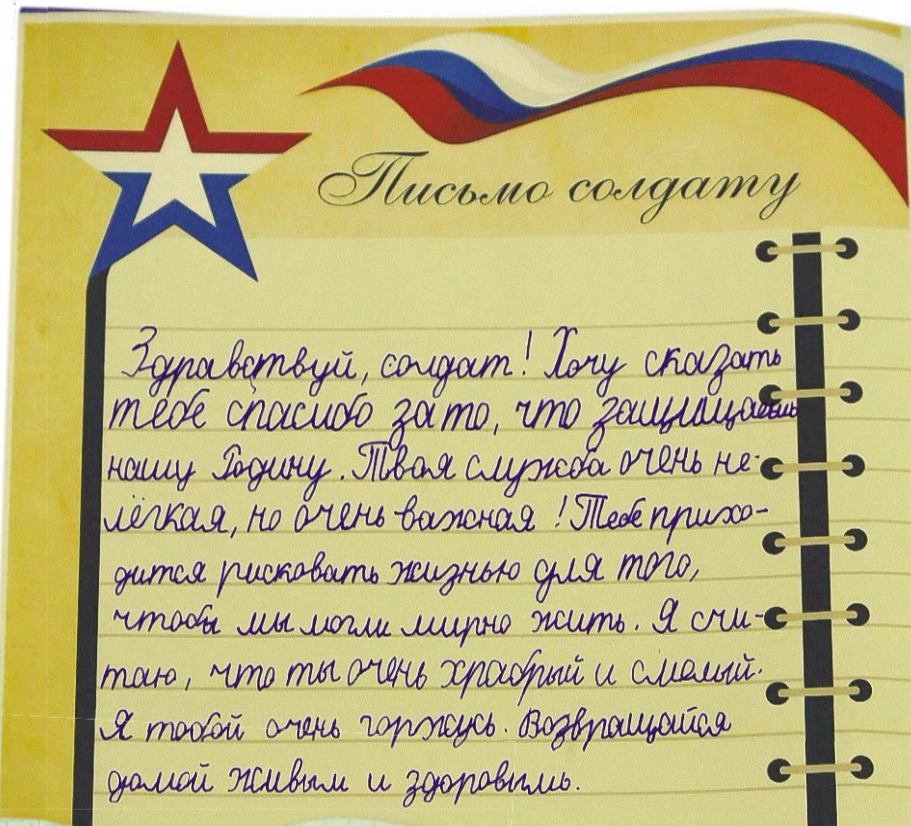 Письмо солдату
Здравствуй, солдат! Хочу сказать
тебе спасибо за то, что защищаешь
нашу Родину. Твоя служба очень не-
лёгкая, но очень важная! Тебе прихо-
дится рисковать жизнью для того,
чтобы мы могли мирно жить. Я счи-
таю, что ты очень храбрый и смелый.
Я тобой очень горжусь. Возвращайся
домой живым и здоровымь.